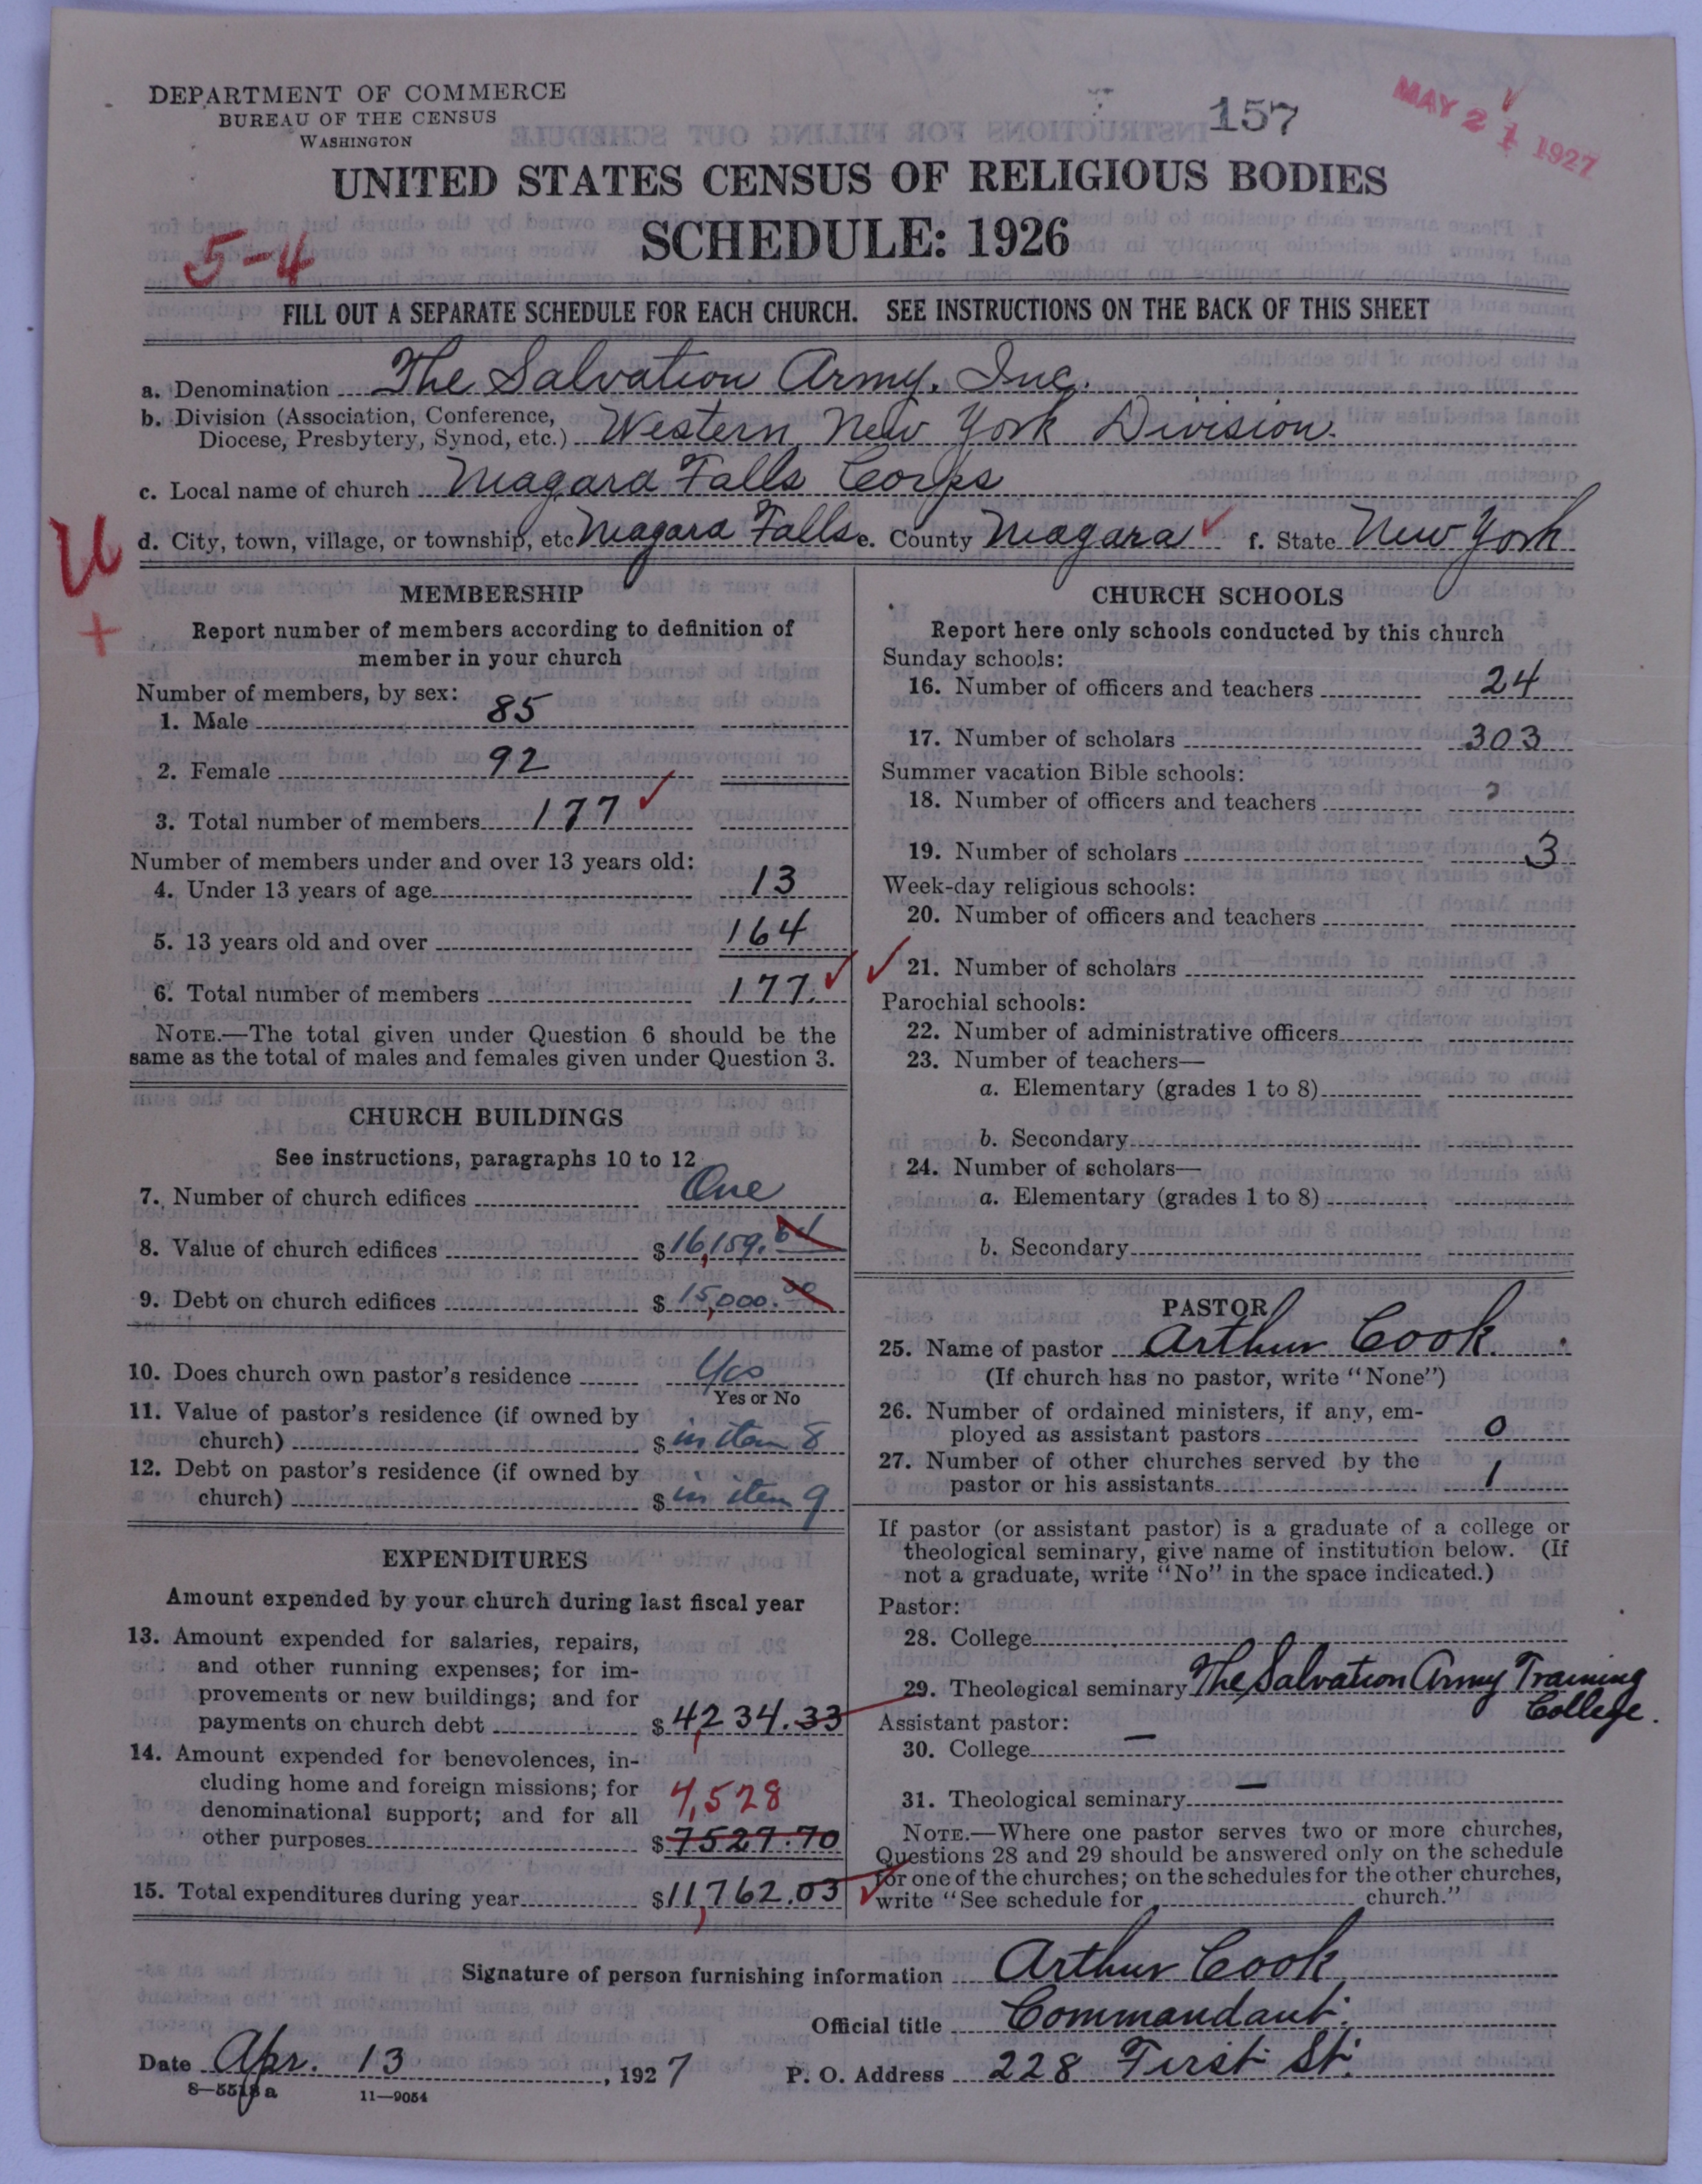 DEPARTMENT OF COMMERCE
BUREAU OF THE CENSUS
WASHINGTON
157
MAY 21 1927
UNITED STATES CENSUS OF RELIGIOUS BODIES
SCHEDULE: 1926
5-4
FILL OUT A SEPARATE SCHEDULE FOR EACH CHURCH. SEE INSTRUCTIONS ON THE BACK OF THIS SHEET
a. Denomination The Salvation Army, Inc.
b. Division (Association, Conference,
Diocese, Presbytery, Synod, etc.) Western New York Division.
c. Local name of church Niagara Falls Corps
d. City, town, village, or township, etc Niagara Falls e. County Niagara f. State New York
U
+
MEMBERSHIP
Report number of members according to definition of
member in your church
Number of members, by sex:
1. Male 85
2. Female 92
3. Total number of members 177
Number of members under and over 13 years old:
4. Under 13 years of age 13
5. 13 years old and over 164
6. Total number of members 177.
NOTE.—The total given under Question 6 should be the
same as the total of males and females given under Question 3.
CHURCH BUILDINGS
See instructions, paragraphs 10 to 12
7. Number of church edifices One
8. Value of church edifices $16,159.
9. Debt on church edifices $15,000.00
10. Does church own pastor's residence Yes
Yes or No
11. Value of pastor's residence (if owned by
church) $ in item 8
12. Debt on pastor's residence (if owned by
church) $ in item 9
EXPENDITURES
Amount expended by your church during last fiscal year
13. Amount expended for salaries, repairs,
and other running expenses; for im-
provements or new buildings; and for
payments on church debt $4,234.33
14. Amount expended for benevolences, in-
cluding home and foreign missions; for
denominational support; and for all
7,528
other purposes $7527.70
15. Total expenditures during year $11,762.03
CHURCH SCHOOLS
Report here only schools conducted by this church
Sunday schools:
16. Number of officers and teachers 24
17. Number of scholars 303
Summer vacation Bible schools:
18. Number of officers and teachers
19. Number of scholars 3
Week-day religious schools:
20. Number of officers and teachers
21. Number of scholars
Parochial schools:
22. Number of administrative officers
23. Number of teachers—
a. Elementary (grades 1 to 8)
b. Secondary
24. Number of scholars—
a. Elementary (grades 1 to 8)
b. Secondary
PASTOR
25. Name of pastor Arthur Cook.
(If church has no pastor, write "None")
26. Number of ordained ministers, if any, em-
ployed as assistant pastors 0
27. Number of other churches served by the
pastor or his assistants 1
If pastor (or assistant pastor) is a graduate of a college or
theological seminary, give name of institution below. (If
not a graduate, write "No" in the space indicated.)
Pastor:
28. College
29. Theological seminary The Salvation Army Training
College.
Assistant pastor:
30. College —
31. Theological seminary —
NOTE.—Where one pastor serves two or more churches,
Questions 28 and 29 should be answered only on the schedule
for one of the churches; on the schedules for the other churches,
write "See schedule for church."
Signature of person furnishing information Arthur Cook
Official title Commandant.
Date Apr. 13, 1927 P. O. Address 228 First St.
8—5518 a 11—9054